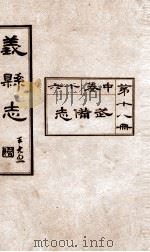 第十八冊
中卷
武備志
義縣志